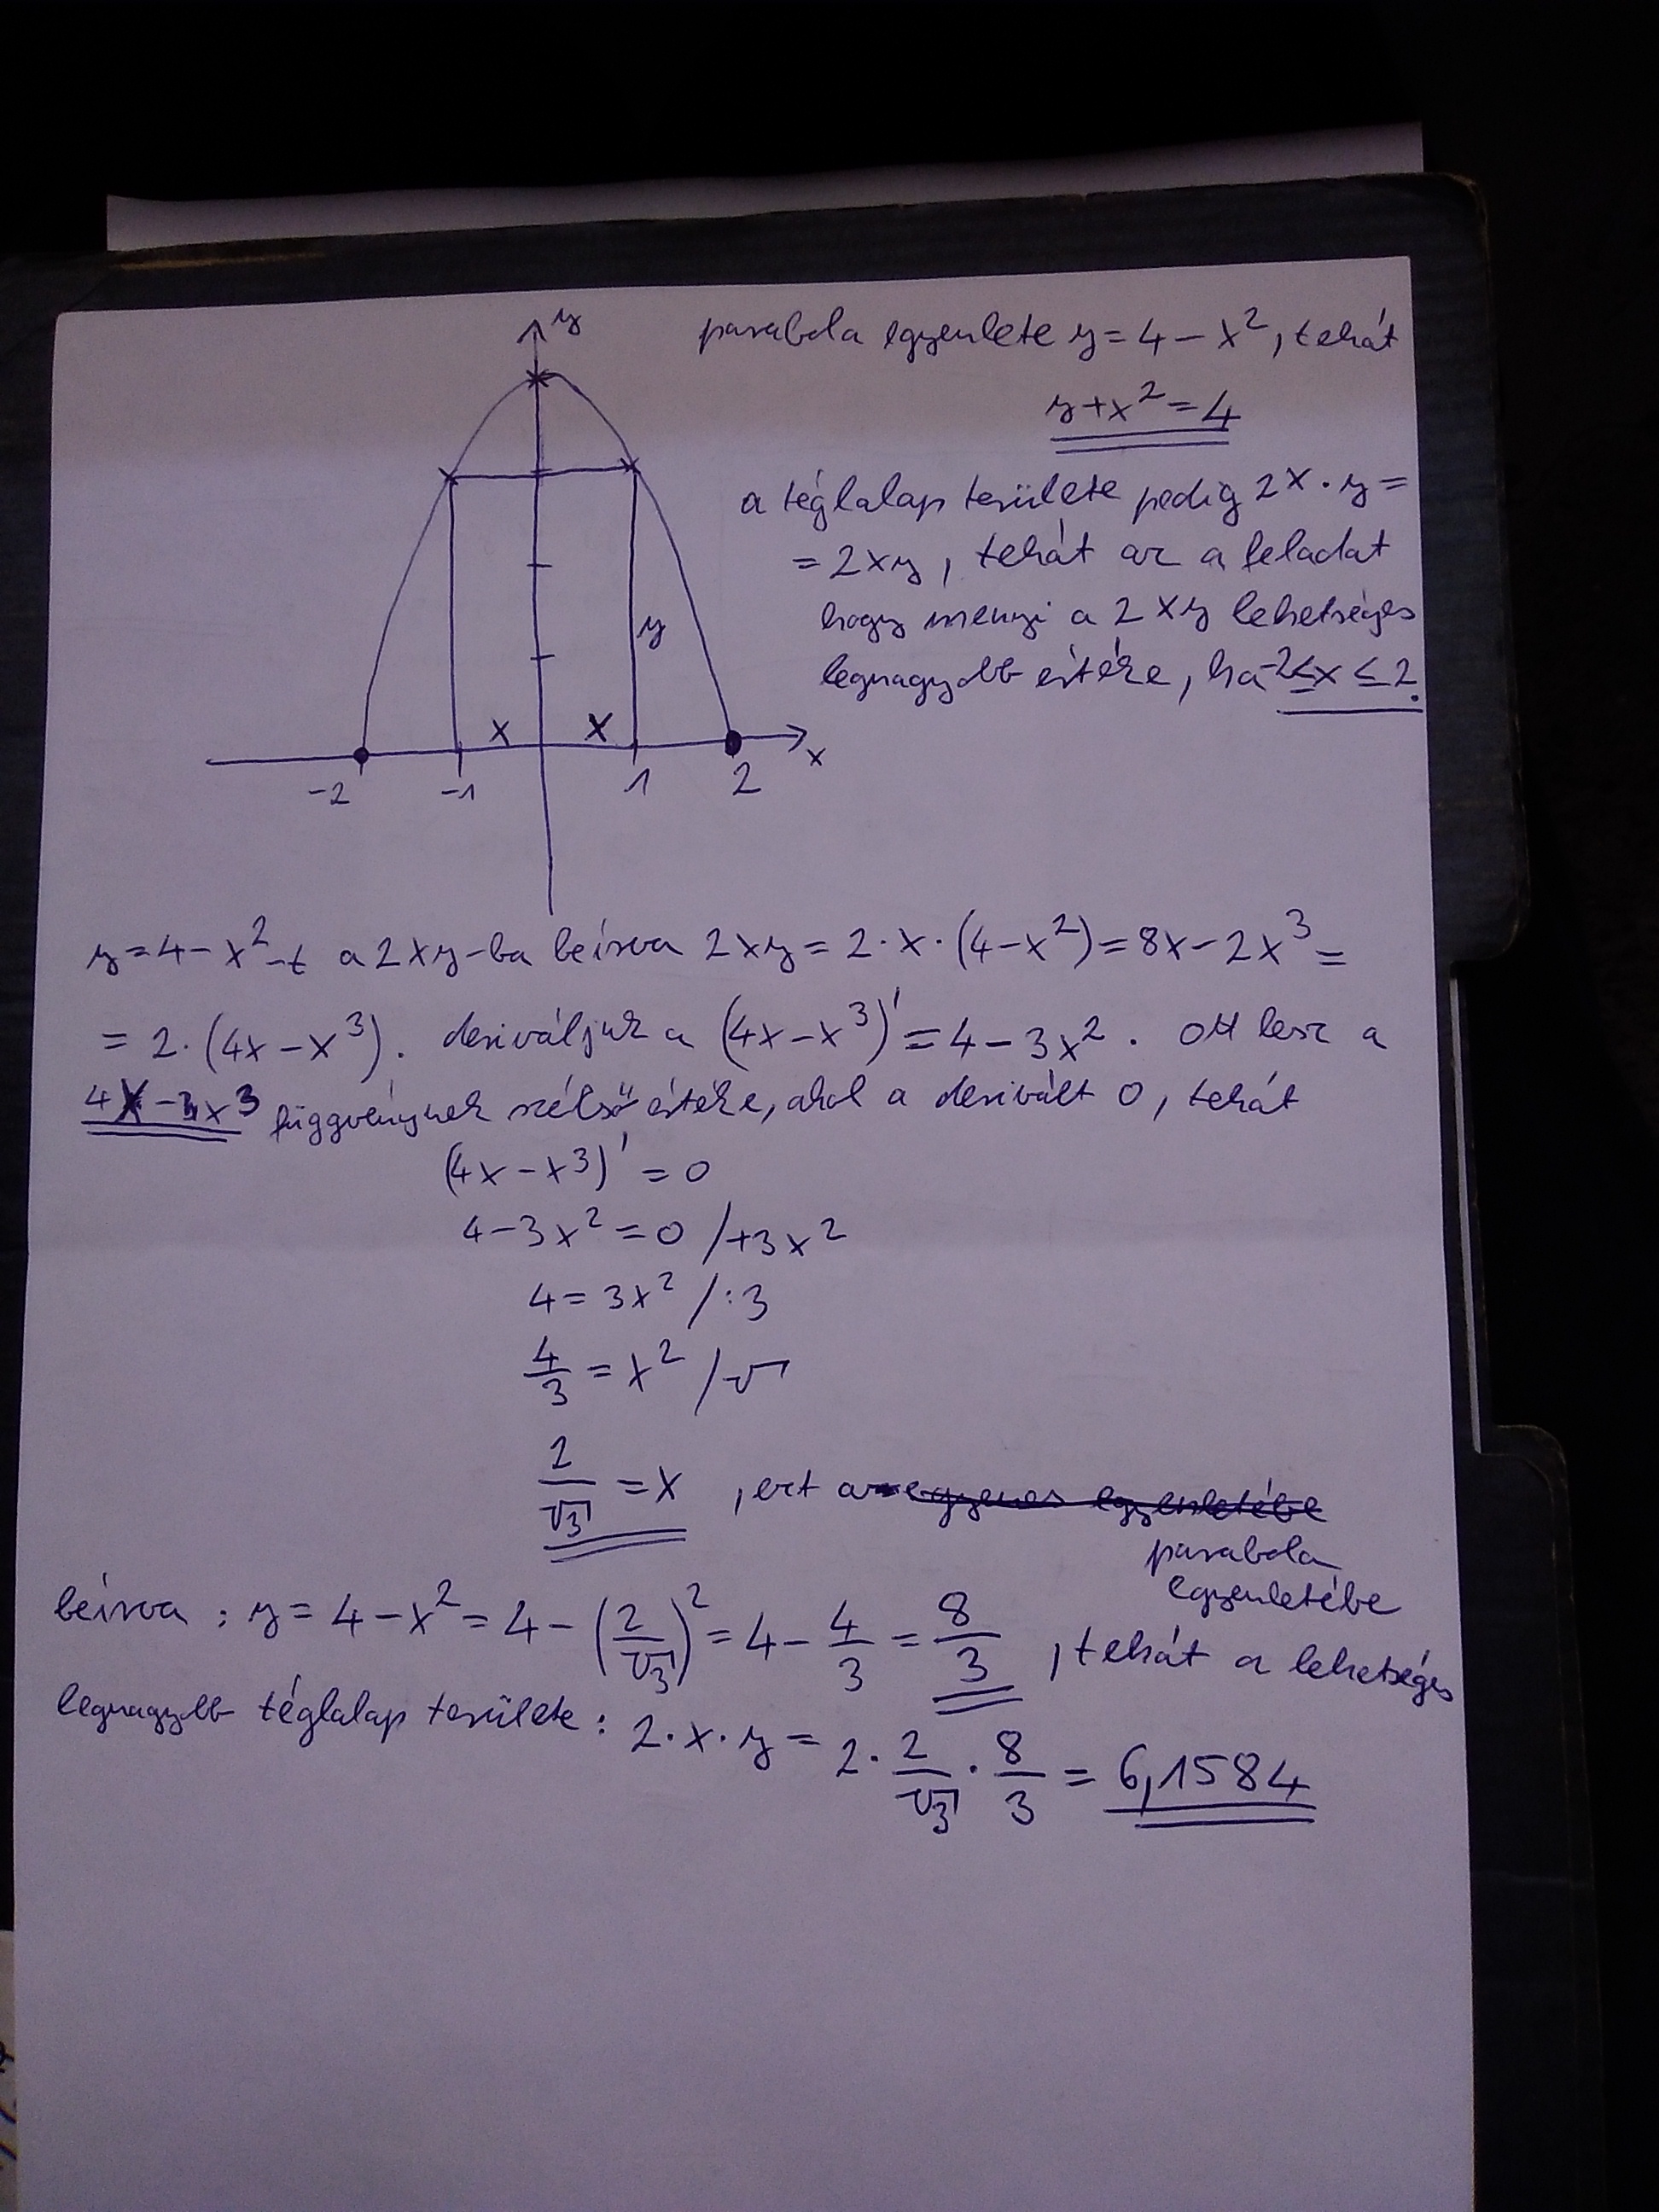 y
parabola egyenlete y = 4 - x², tehát
y + x² = 4
a téglalap területe pedig 2x · y =
= 2xy, tehát az a feladat
hogy menyi a 2xy lehetséges
legnagyobb értéke, ha -2 ≤ x ≤ 2.
y
x x
x
-2 -1 1 2
y = 4 - x²-t a 2xy-ba beírva 2xy = 2 · x · (4 - x²) = 8x - 2x³ =
= 2 · (4x - x³). deriváljuk a (4x - x³)' = 4 - 3x². ott lesz a
függvénynek szélsőértéke, ahol a derivált 0, tehát
(4x - x³)' = 0
4 - 3x² = 0 /+3x²
4 = 3x² /:3
4/3 = x² /√
2/√3 = x , ezt a egyenes egyenletébe
parabola
egyenletébe
beírva : y = 4 - x² = 4 - (2/√3)² = 4 - 4/3 = 8/3 , tehát a lehetséges
legnagyobb téglalap területe : 2 · x · y = 2 · 2/√3 · 8/3 = 6,1584